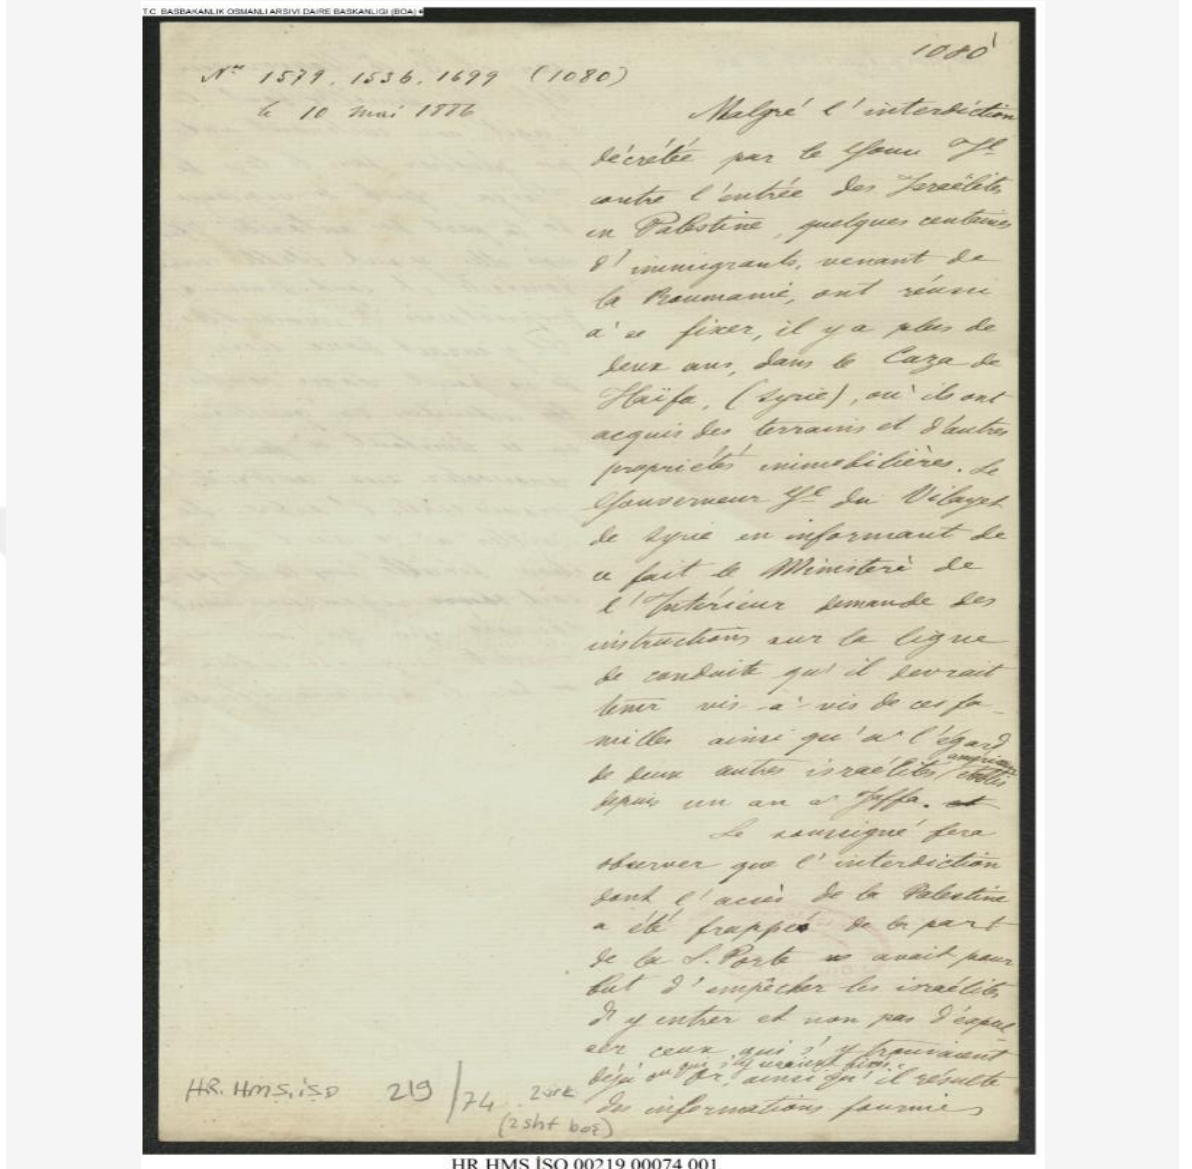 T.C. BASBAKANLIK OSMANLI ARSIVI DAIRE BASKANLIGI (BOA)
1080
Nos 1579. 1536. 1699 (1080)
le 10 mai 1886
Malgré l'interdiction
décrétée par le Gouv Gl
contre l'entrée des Israëlites
en Palestine, quelques centaines
d'immigrants, venant de
la Roumanie, ont réussi
à se fixer, il y a plus de
deux ans, dans le Caza de
Haïfa, (Syrie), où ils ont
acquis des terrains et d'autres
propriétés immobilières. Le
Gouverneur Gl du Vilayet
de Syrie en informant de
ce fait le Ministère de
l'Intérieur demande des
instructions sur la ligne
de conduite qu'il devrait
tenir vis-à-vis de ces fa-
milles ainsi qu'à l'égard
américains
de deux autres israélites établis
depuis un an à Jaffa.
Le soussigné fera
observer que l'interdiction
dont l'accès de la Palestine
a été frappé de la part
de la S. Porte avait pour
but d'empêcher les israélites
d'y entrer et non pas d'expul
ser ceux qui s'y trouvaient
ou qui s'y seraient fixés.
déjà Or, ainsi qu'il résulte
des informations fournies
HR. HMS.İSO 219/74 2vrk
(2 shf boş)
HR.HMS.İSO.00219.00074.001